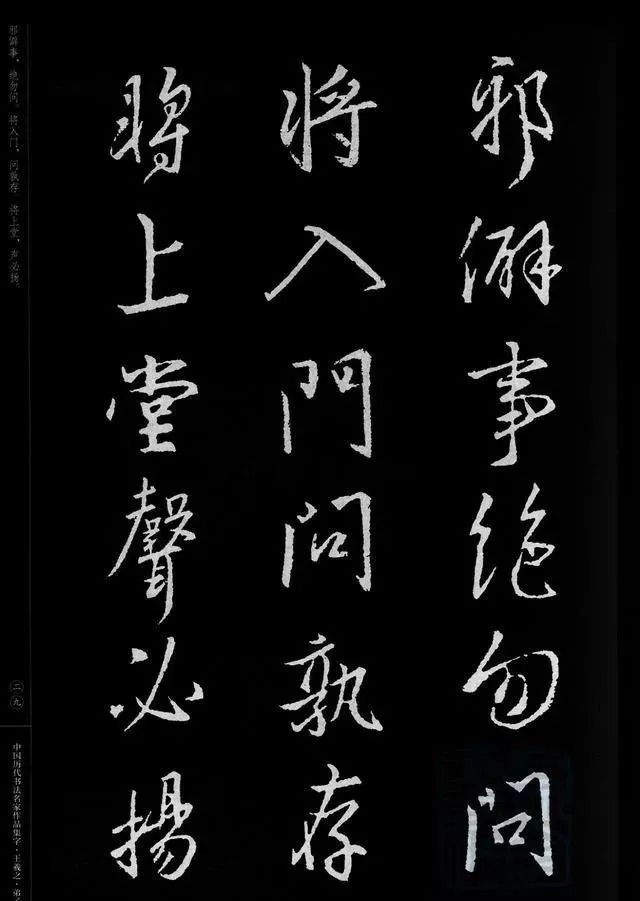 邪僻事絕勿問
將入門問孰存
將上堂聲必揚
邪僻事，绝勿问。将入门，问孰存 将上堂，声必扬。
二九
中国历代书法名家作品集字·王羲之·弟子